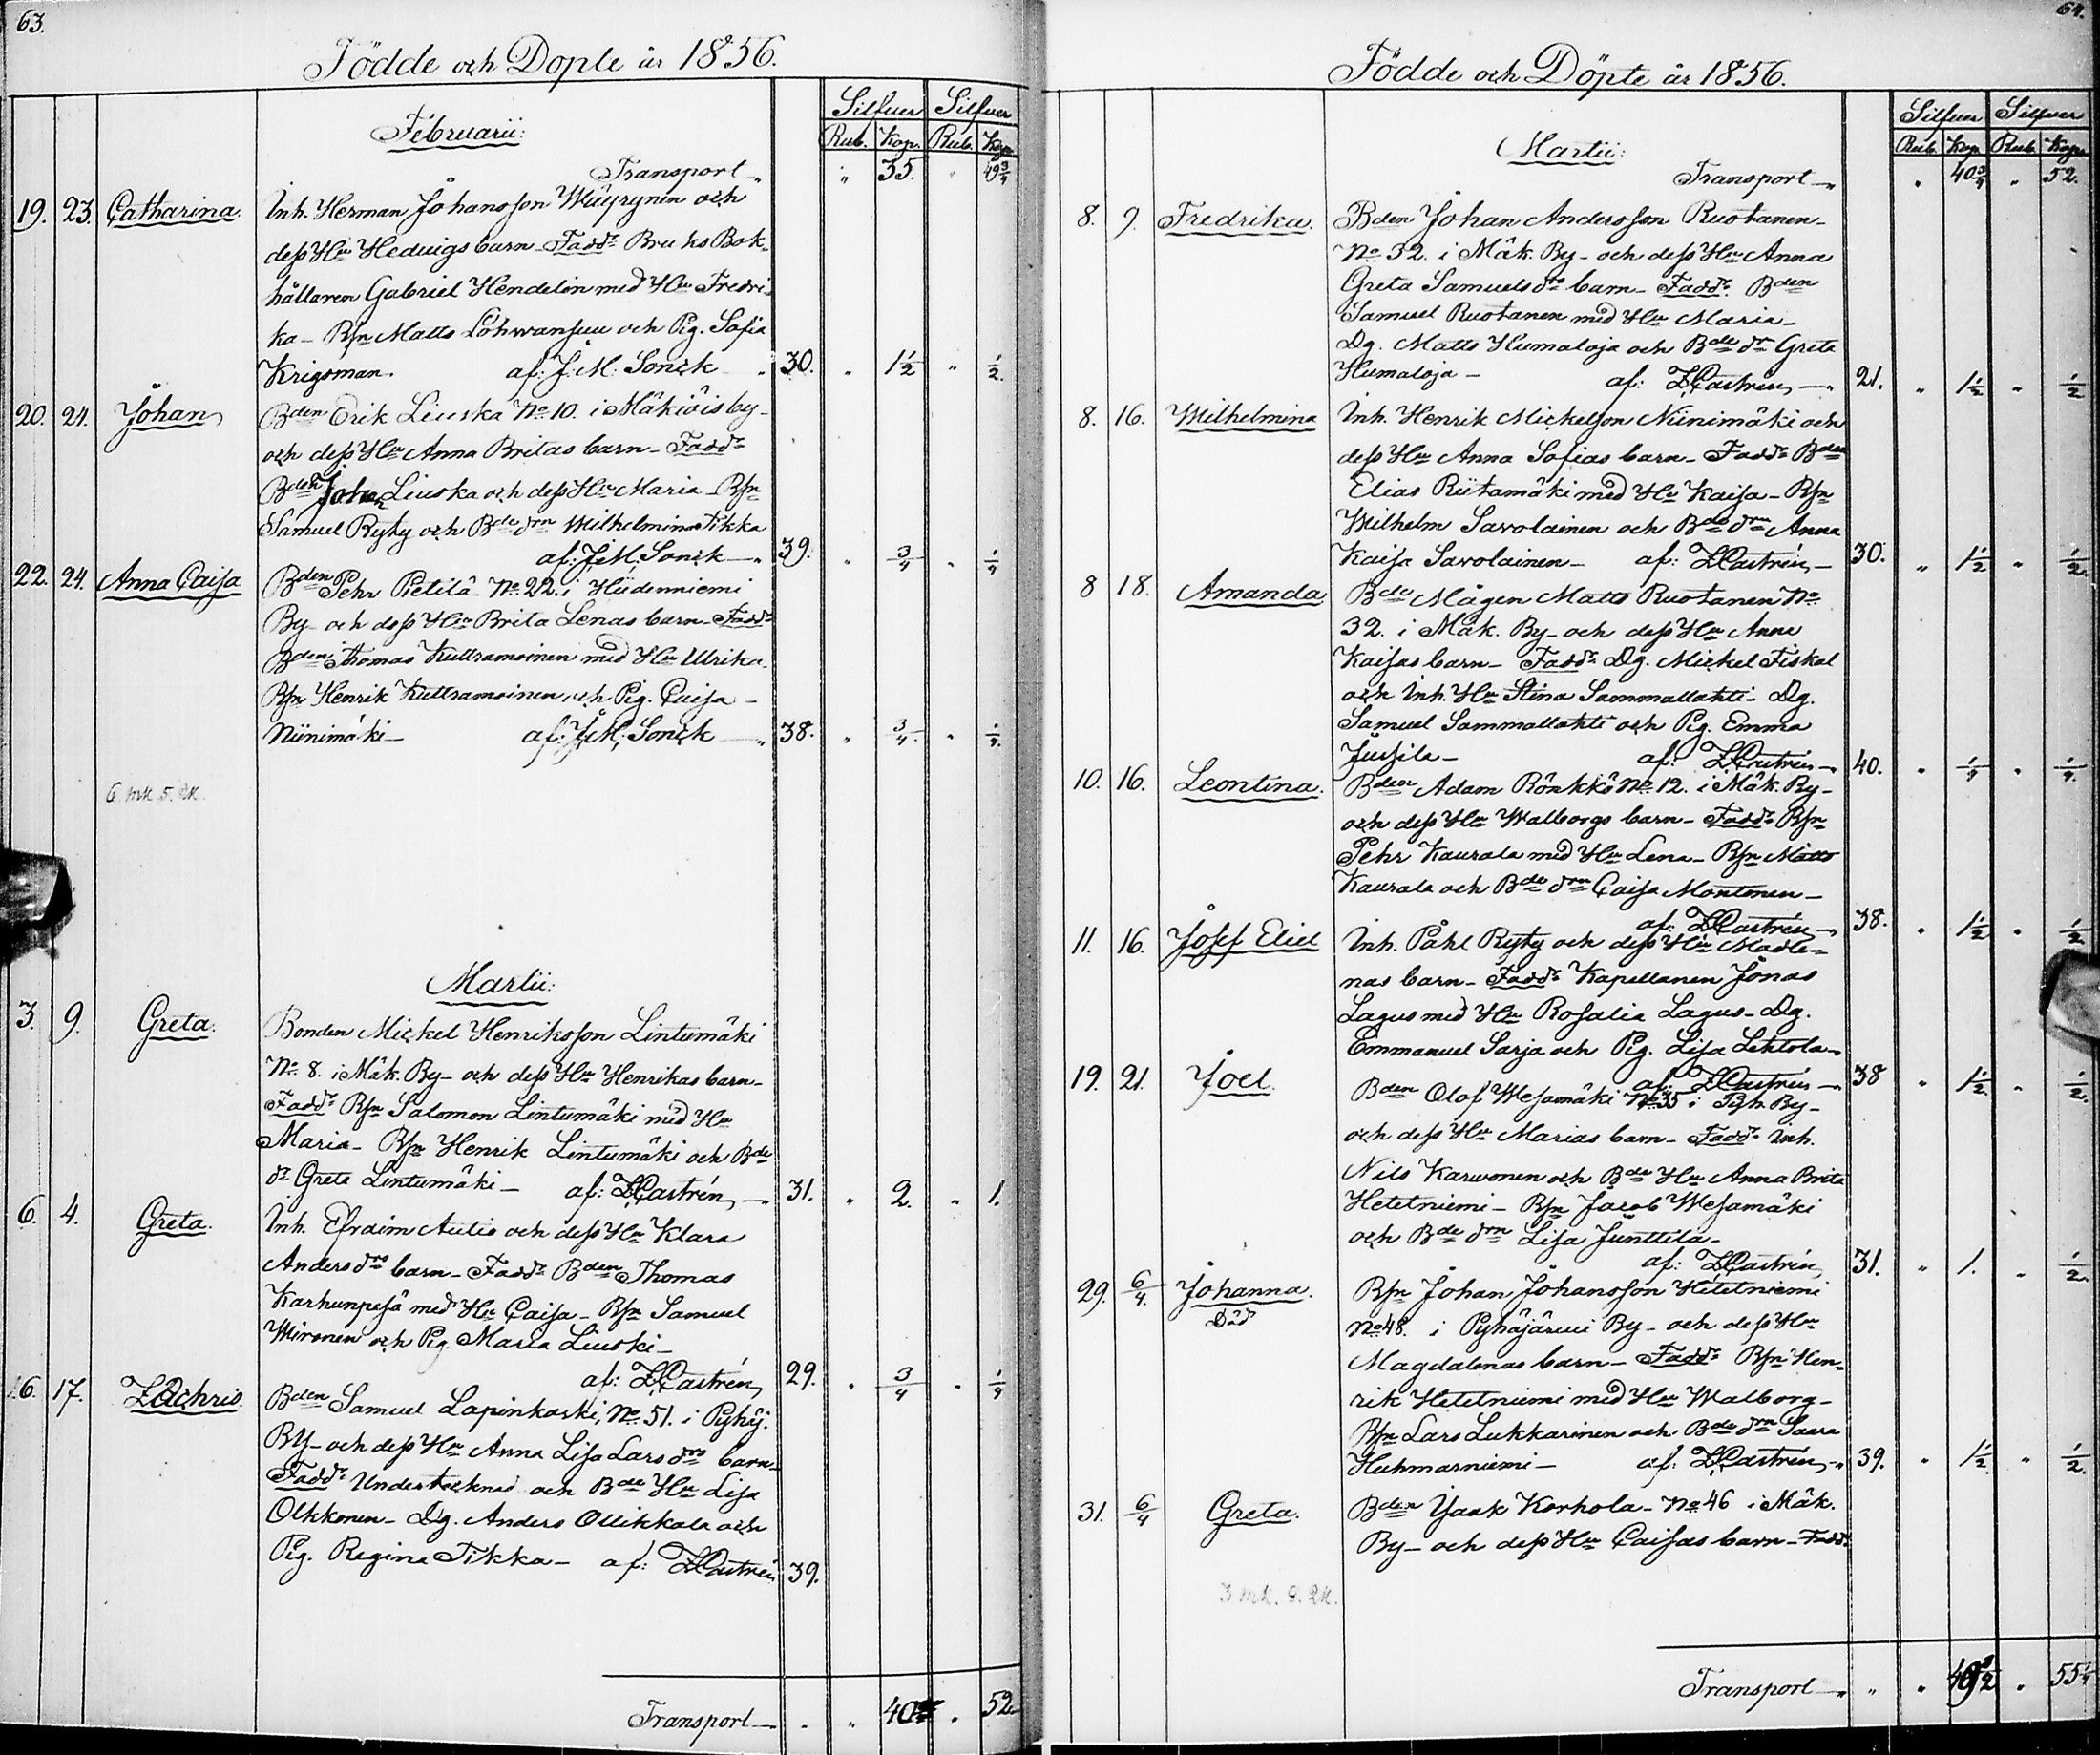 63.
Födde och Döpte år 1856.
Silfver Silfver
Rub. Kop. Rub. Kop.
Februarii:
Transport „ „ 35. „ 49 3/4
19. 23. Catharina. Inh. Herman Johansson Wäyrynen och
dess Hu Hedvigs barn - Fadd: Bruks Bok-
hållaren Gabriel Hendelin med Hu Fredri
ka - Bsn Matts Löhwansuu och Pig. Sofia
Krigsman. af: J. M. Sonck 30. „ 1 1/2 „ 1/2.
20. 24. Johan Bden Erik Liuska No 10. i Mäkiöis by-
och dess Hu Anna Britas barn - Fadd:
Bden Joh Liuska och dess Hu Maria - Bsn
Samuel Ryty och Bde drn Wilhelmina Tikka
af: J. M. Sonck 39. „ 3/4 „ 1/4
22. 24. Anna Caisa Bden Pehr Pietilä No 22. i Hiidenniemi
By - och dess Hu Brita Lenas barn - Fadd:
Bden Thomas Kuttramoinen med Hu Ulrika.
Bsn Henrik Kuttramoinen och Pig. Caisa -
Niinimäki - af: J. M. Sonck 38. „ 3/4. „ 1/4.
6. mk. 5. qk.
Martii:
3. 9. Greta. Bonden Mickel Henriksson Lintumäki
No 8. i Mäk. By - och dess Hu Henrikas barn -
Fadd: Bsn Salomon Lintumäki med Hu
Maria - Bsn Henrik Lintumäki och Bde
dr Greta Lintumäki - af: Z. Castrén, 31. „ 2. „ 1.
6. 4. Greta. Inh. Efraim Aulis och dess Hu Klara
Anders drs barn - Fadd: Bden Thomas
Karhunpesä med Hu Caisa - Bsn Samuel
Mironen och Pig. Maria Liuski -
af: Z. Castrén, 29. „ 3/4 „ 1/4
16. 17. Zachris. Bden Samuel Lapinkoski, No 51. i Pyhäj.
By - och dess Hu Anna Lisa Lars drs barn -
Fadd: Undertecknad och Bde Hu Lisa
Olkkonen - Dg. Anders Ollikkala och
Pig. Regina Tikka - af: Z. Castrén 39.
Transport „ „ 40 „ 52.
64.
Födde och Döpte år 1856.
Silfver Silfver
Rub. Kop. Rub. Kop.
Martii:
Transport „ „ 40 3/4 „ 52.
8. 9. Fredrika. Bden Johan Andersson Ruotanen -
No 32. i Mäk. By - och dess Hu Anna
Greta Samuels drs barn - Fadd: Bden
Samuel Ruotanen med Hu Maria -
Dg. Matts Humaloja och Bde dr Greta
Humaloja - af: Z. Castrén, 21. „ 1 1/2 „ 1/2
8. 16. Wilhelmina Inh. Henrik Mickelson Niinimäki och
dess Hu Anna Sofias barn - Fadd: Bden
Elias Riitamäki med Hu Kaisa - Bsn
Wilhelm Savolainen och Bde drn Anna
Kaisa Savolainen - af: Z. Castrén, 30. „ 1 1/2 „ 1/2.
8 18. Amanda Bde Mågen Matts Ruotanen No
32. i Mäk. By - och dess Hu Anna
Kaisas barn - Fadd: Dg. Mickel Fiskal
och Inh. Hu Stina Sammallahti - Dg.
Samuel Sammallahti och Pig. Emma
Jussila - af: Z. Castrén - 40. „ 1/4 „ 1/4.
10. 16. Leontina. Bden Adam Rönkkö No 12. i Mäk. By -
och dess Hu Walborgs barn - Fadd: Bsn
Pehr Kaurala med Hu Lena - Bsn Matts
Kaurala och Bde drn Caisa Montonen -
af: Z. Castrén, 38. „ 1 1/2 „ 1/2
11. 16. Josef Eliel Inh. Påhl Ryty och dess Hu Madle-
nas barn - Fadd: Kapellanen Jonas
Lagus med Hu Rosalia Lagus - Dg.
Emmanuel Sarja och Pig. Lisa Lehtola -
af: Z. Castrén - 38 „ 1 1/2. „ 1/2.
19. 21. Joel. Bden Olof Wesamäki No 35 i Pyh. By -
och dess Hu Marias barn - Fadd: Inh.
Nils Karvonen och Bde Hu Anna Brita
Hetetniemi - Bsn Jacob Wesamäki
och Bde drn Lisa Junttila -
af: Z. Castrén, 31. „ 1. „ 1/2.
29. 6/4. Johanna. Bsn Johan Johansson Hetetniemi
Död No 48. i Pyhäjärvi By - och dess Hu
Magdalenas barn - Fadd: Bsn Hen-
rik Hetetniemi med Hu Walborg -
Bsn Lars Lukkarinen och Bde drn Saara
Huhmarniemi - af: Z. Castrén, 39. „ 1 1/2. „ 1/2.
31. 6/4 Greta. Bden Isak Korhola - No 46 i Mäk.
By - och dess Hu Caisas barn - Fadd:
3 mk. 8. qk.
Transport „ „ 49 1/2 „ 55 1/4